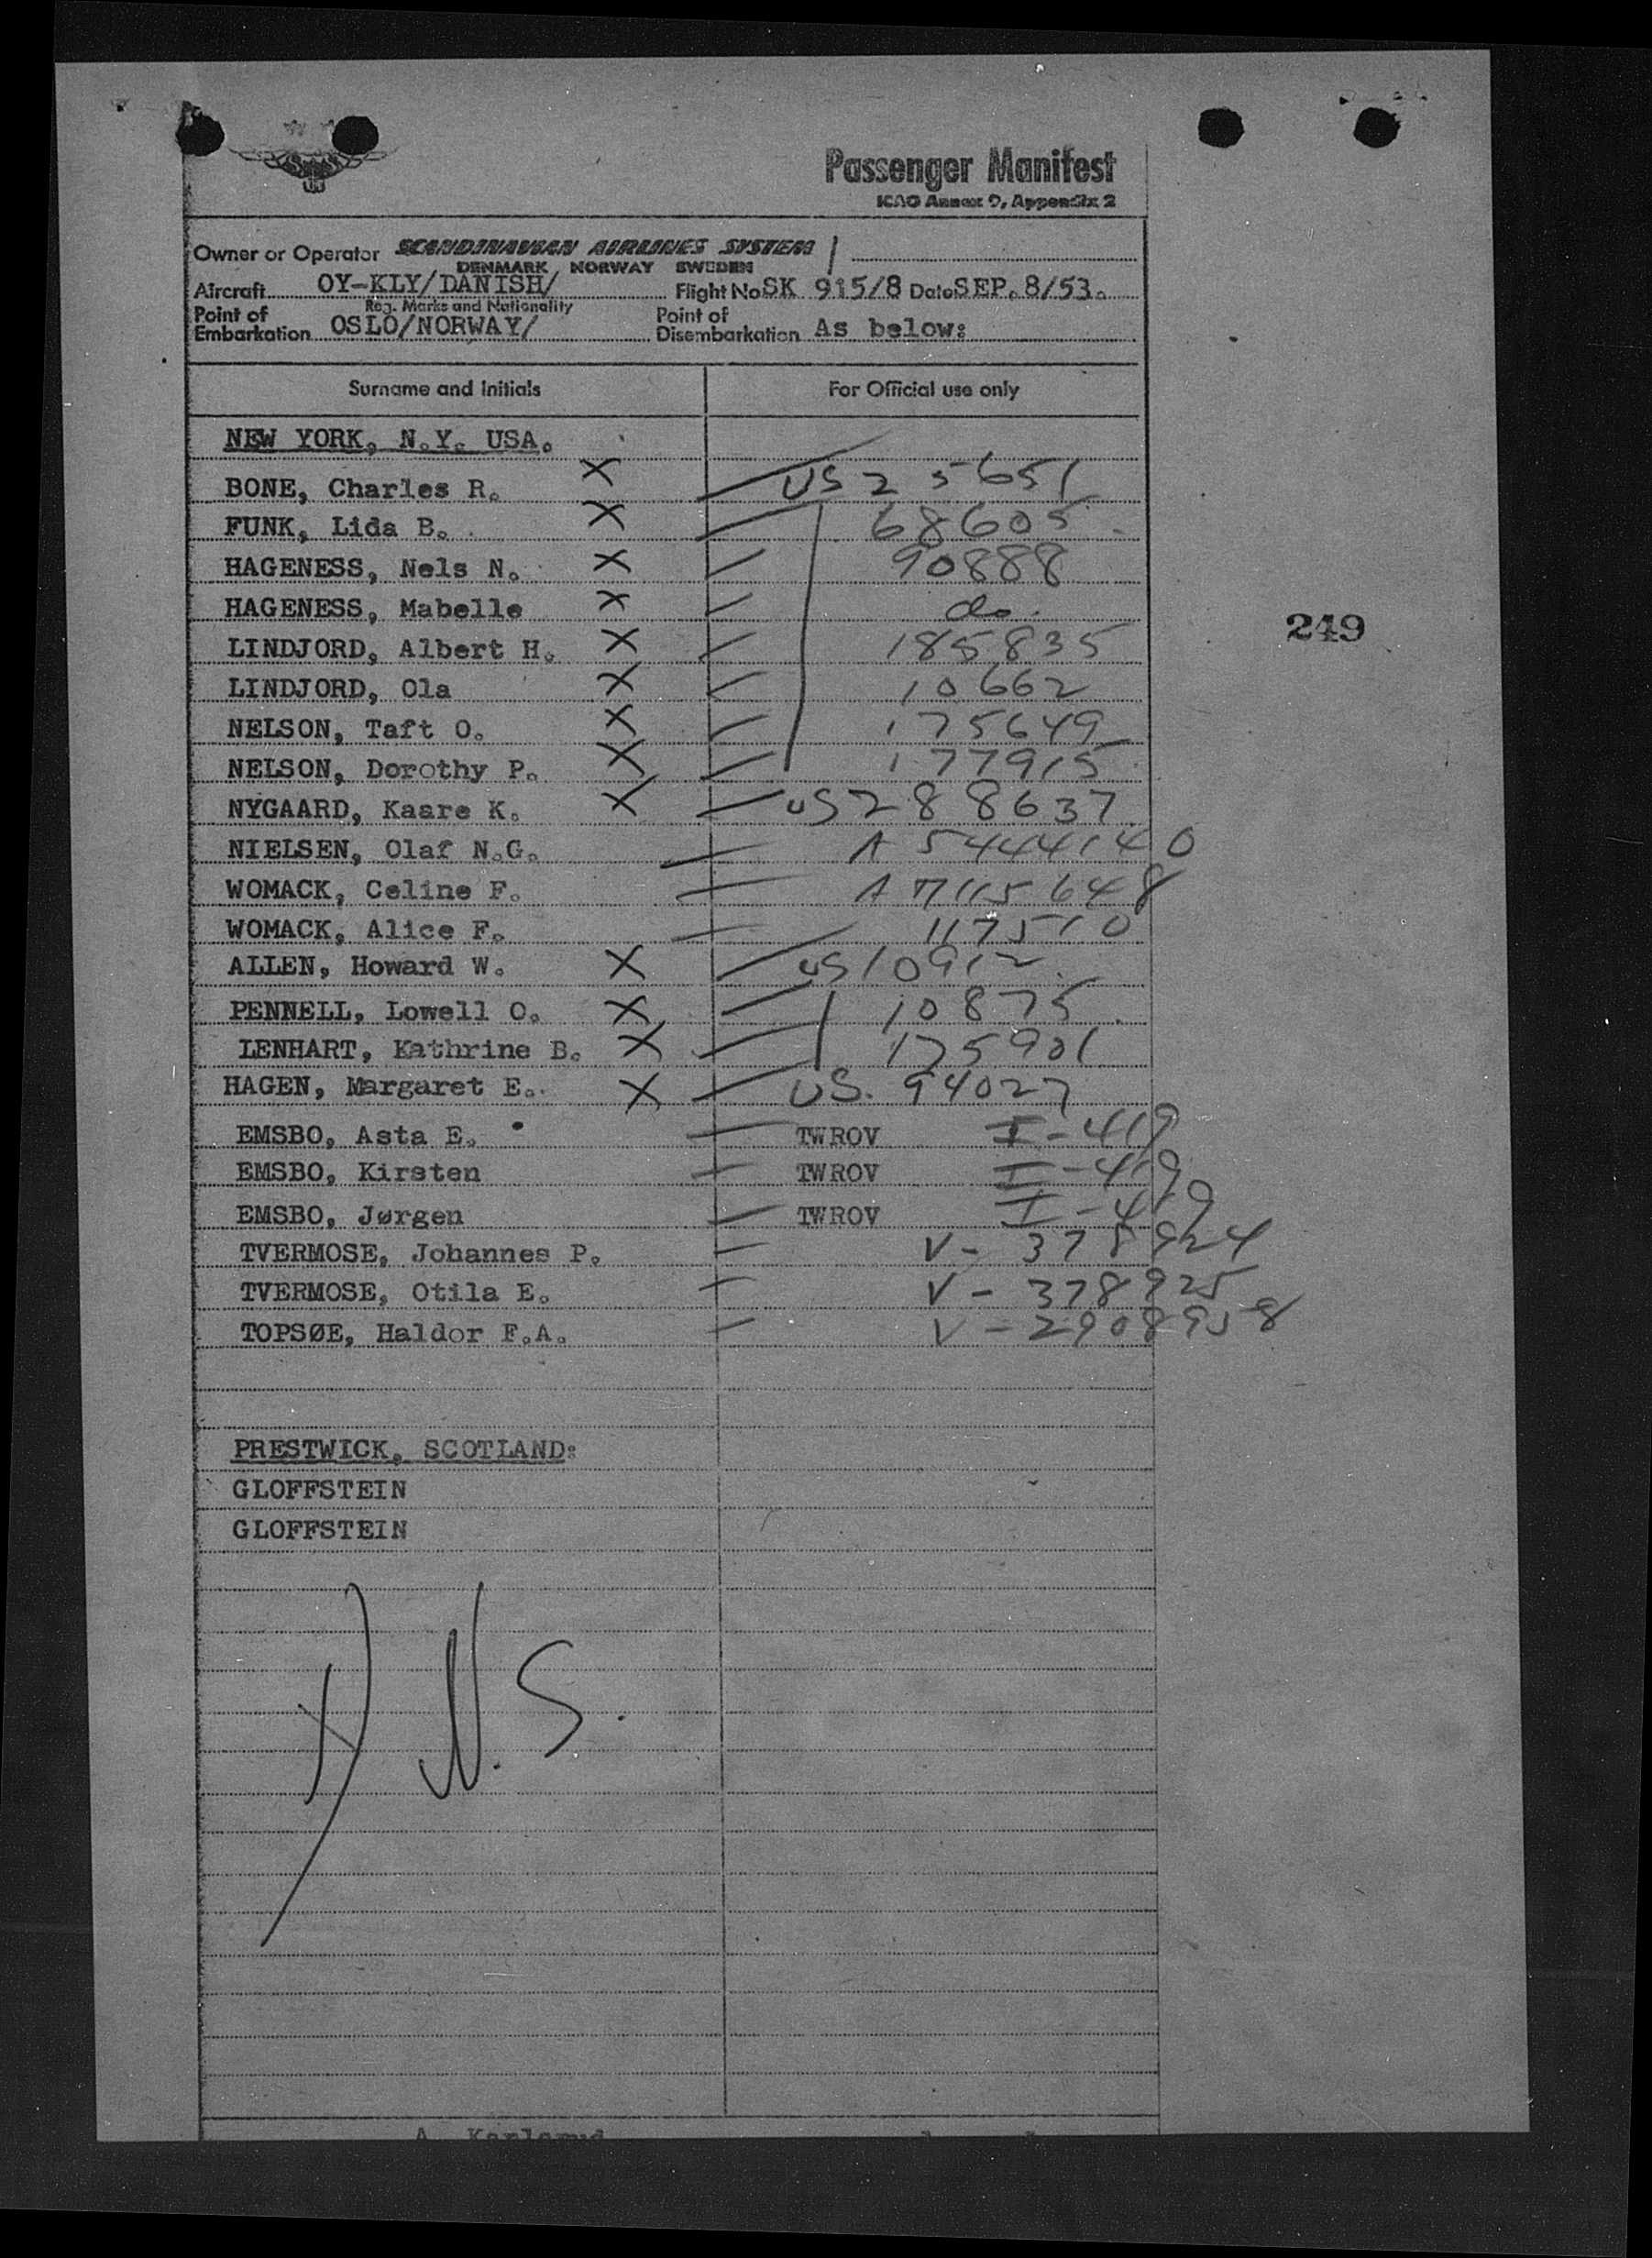 Passenger Manifest
ICAO Annex 9, Appendix 2
Owner or Operator SCANDINAVIAN AIRLINES SYSTEM
DENMARK NORWAY SWEDEN
Aircraft OY-KLY/DANISH/ Flight No SK 915/8 Date SEP. 8/53.
Reg. Marks and Nationality
Point of Embarkation OSLO/NORWAY/ Point of Disembarkation As below:
Surname and Initials For Official use only
NEW YORK, N.Y. USA.
BONE, Charles R. X US 235651
FUNK, Lida B. X 68605
HAGENESS, Nels N. X 90888
249
HAGENESS, Mabelle X do.
LINDJORD, Albert H. X 185835
LINDJORD, Ola X 10662
NELSON, Taft O. X 175649
NELSON, Dorothy P. X 177915
NYGAARD, Kaare K. X US 288637
NIELSEN, Olaf N.G. A 5444140
WOMACK, Celine F. A 7115648
WOMACK, Alice F. 117510
ALLEN, Howard W. X US 10912
PENNELL, Lowell O. X 10875
LENHART, Kathrine B. X 175901
HAGEN, Margaret E. X US. 94027
EMSBO, Asta E. TWROV I-419
EMSBO, Kirsten TWROV I-419
EMSBO, Jørgen TWROV I-419
TVERMOSE, Johannes P. V- 378924
TVERMOSE, Otila E. V- 378925
TOPSØE, Haldor F.A. V-2908958
PRESTWICK, SCOTLAND:
GLOFFSTEIN
GLOFFSTEIN